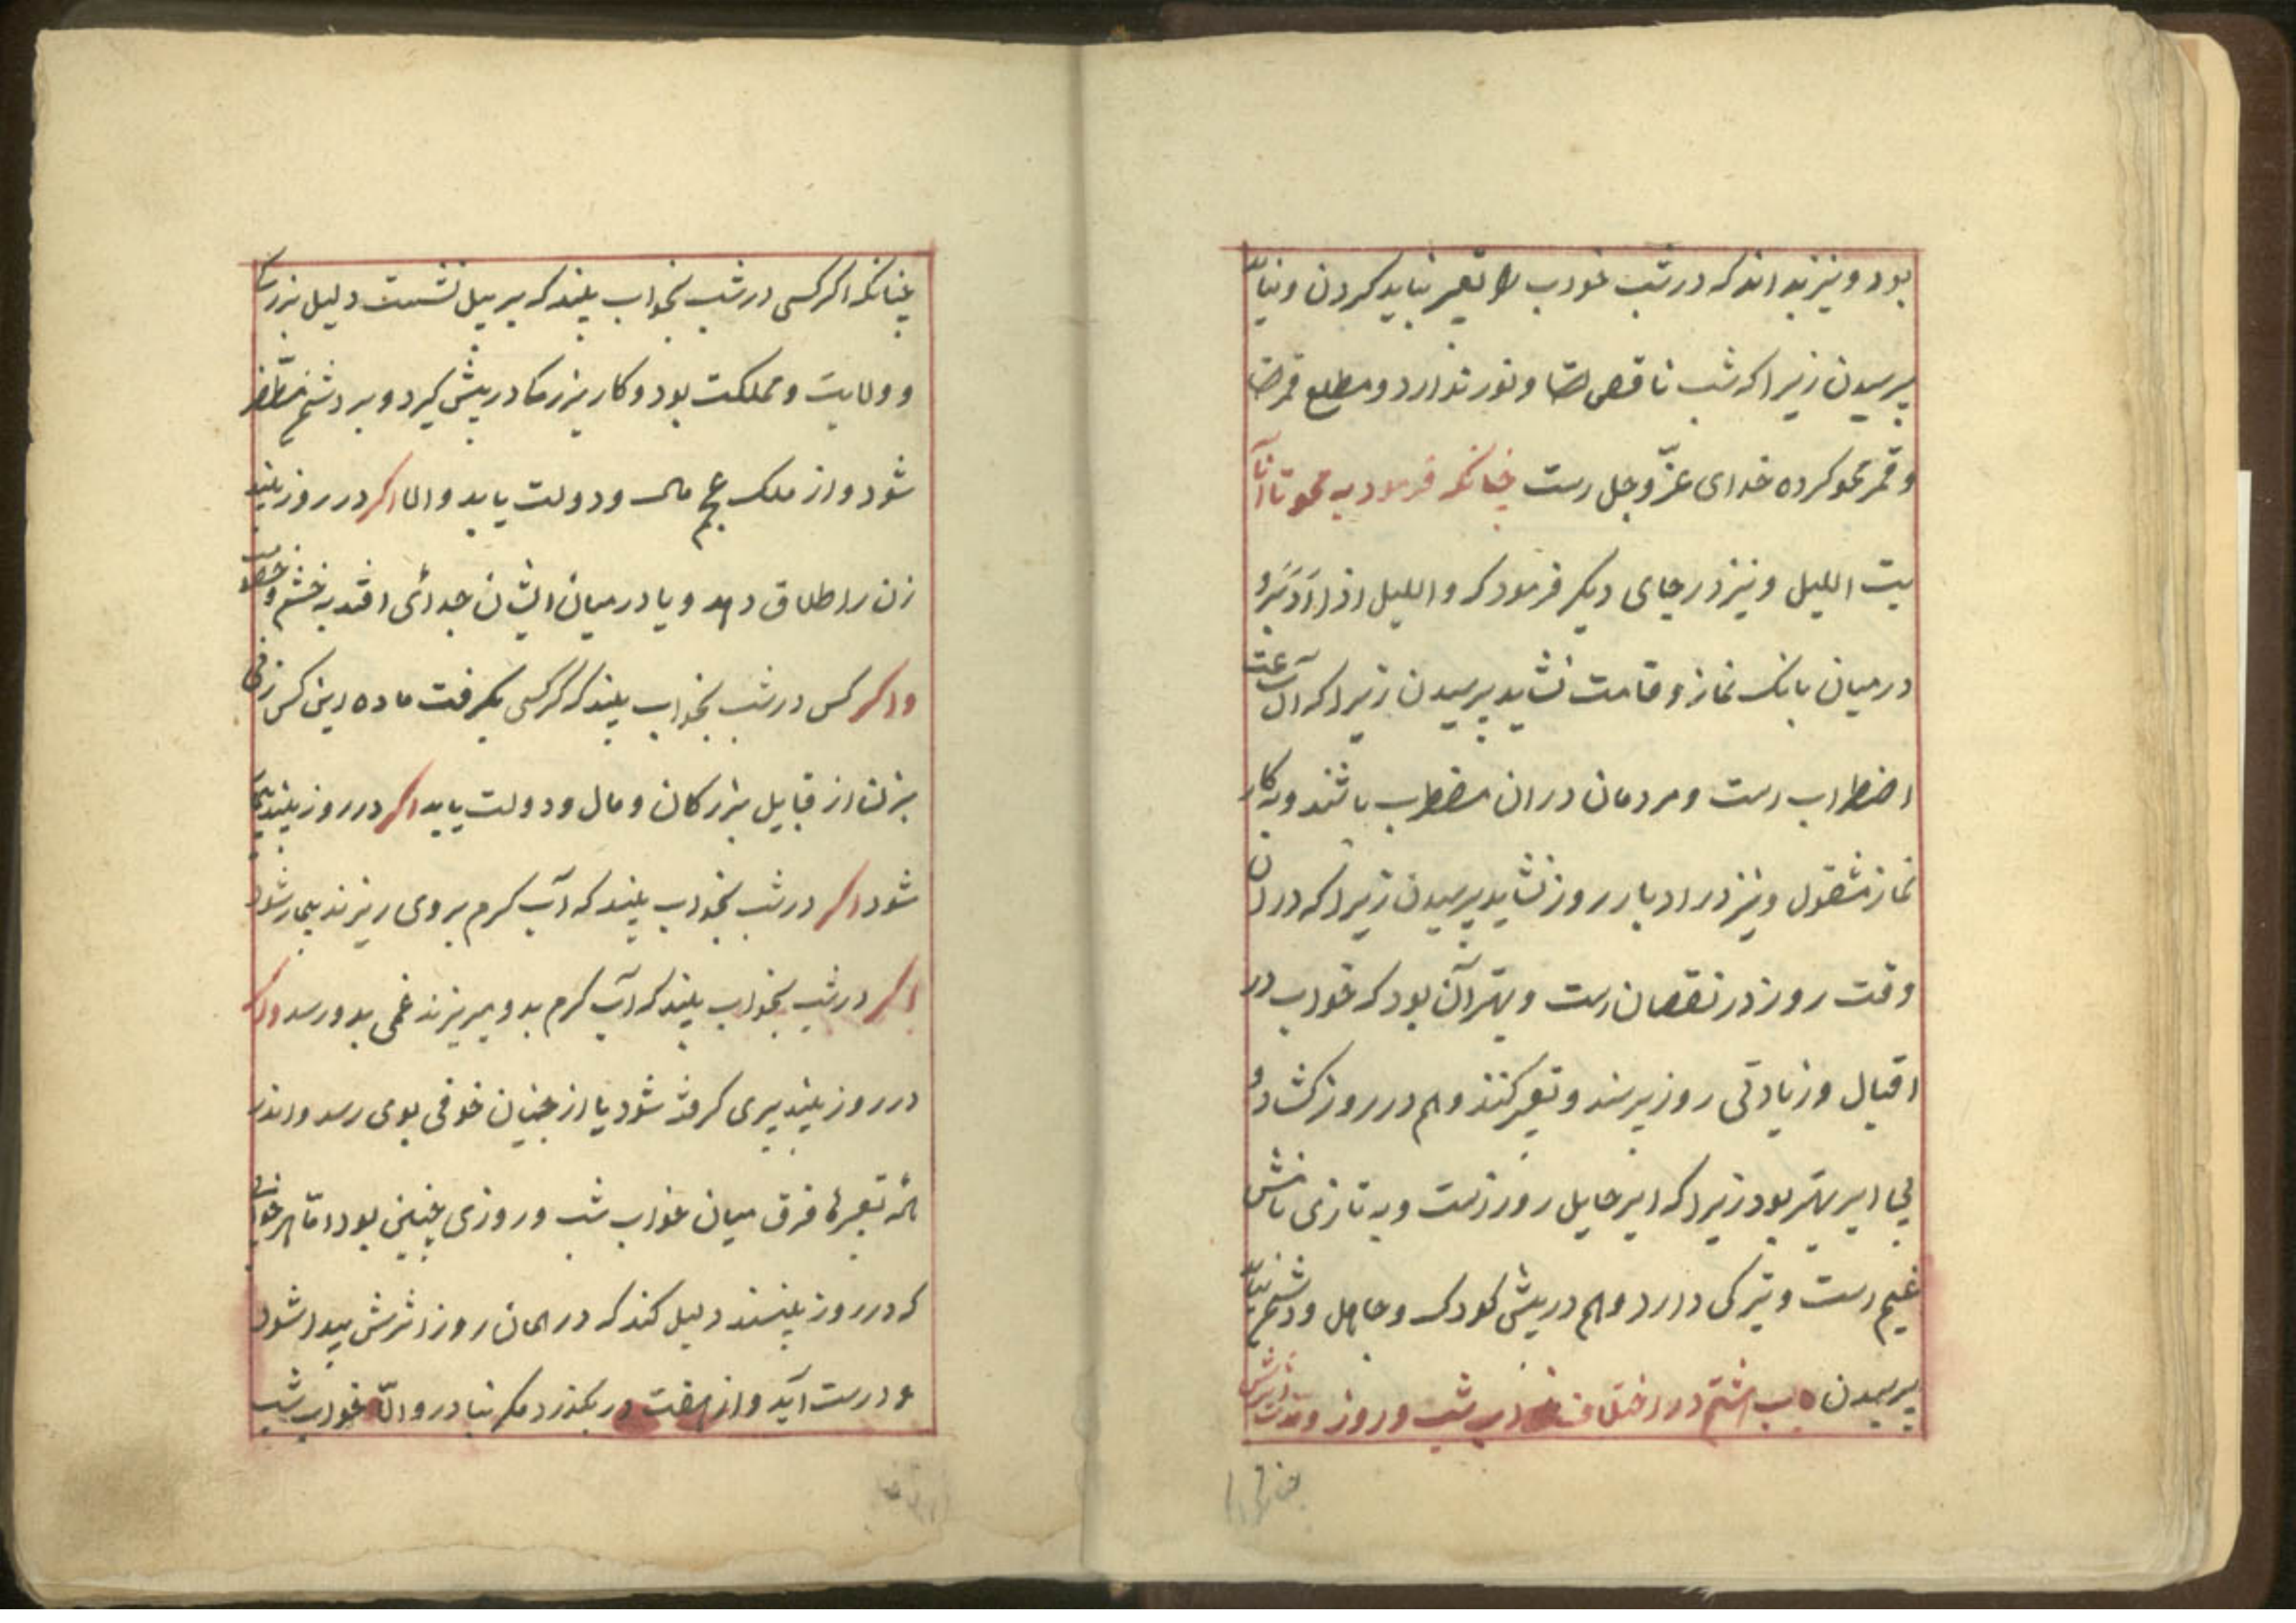 بود و نیز بداند که در شب خواب را تعبیر نباید کردن و نباید
پرسیدن زیرا که شب ناقص است و نور ندارد و مطلع قمر است
و قمر محو کرده خدای عزّ و جل است چنانکه فرموده محونا آ
یت اللیل و نیز در جای دیگر فرمود که و اللیل اذا ادبر و
در میان بانک نماز و قامت نشاید پرسیدن زیرا که آن ساعت
اضطراب است و مردمان در ان مضطرب باشند و به کار
نماز مشقول و نیز در ادبار روز نشاید پرسیدن زیرا که در ان
وقت روز در نقصان است و بهتر آن بود که خواب در
اقبال و زیادتی روز پرسند و تعبیر کنند و هم در روز کشاده و
بی ابر بهتر بود زیرا که ابر حایل روز است و به تازی نامش
غیم است و تیرکی دارد و هم در پیش کودک و جاهل و دشمن نباید
پرسیدن باب هشتم در اختلاف خواب شب و روز و
چنانکه اکر کسی در شب بخواب بیند که بر پیل نشست دلیل بزرکی
و ولایت و مملکت بود و کار بزرکا در پیش کیرد و بر دشمن مظفر
شود و از ملک عجم مال و دولت یابد و اما اکر در روز بیند
زن را طلاق دهد و یا در میان ایشان جدائی افتد به خشم و خصومت
و اکر کس در شب بخواب بیند که کرکسی بکرفت ماده این کس زنی
بزند از قبایل بزرکان و مال و دولت یابد اکر در روز بیند بیمار
شود اکر در شب بخواب بیند که آب کرم بر وی ریزند بیمار شود
اکر در شب بخواب بیند که آب کرم بدو میریزند غمی بدو رسد و اکر
در روز بیند پری کرفته شود یا از جنیان خوفی بوی رسد و اندر
همه تعبیرها فرق میان خواب شب و روزی چنین بود امّا هر خوابی
که در روز بینند دلیل کند که در همان روز اثرش پیدا شود
و درست آید و از هفت در بکذرد مکر بنادر و الّا خواب شب